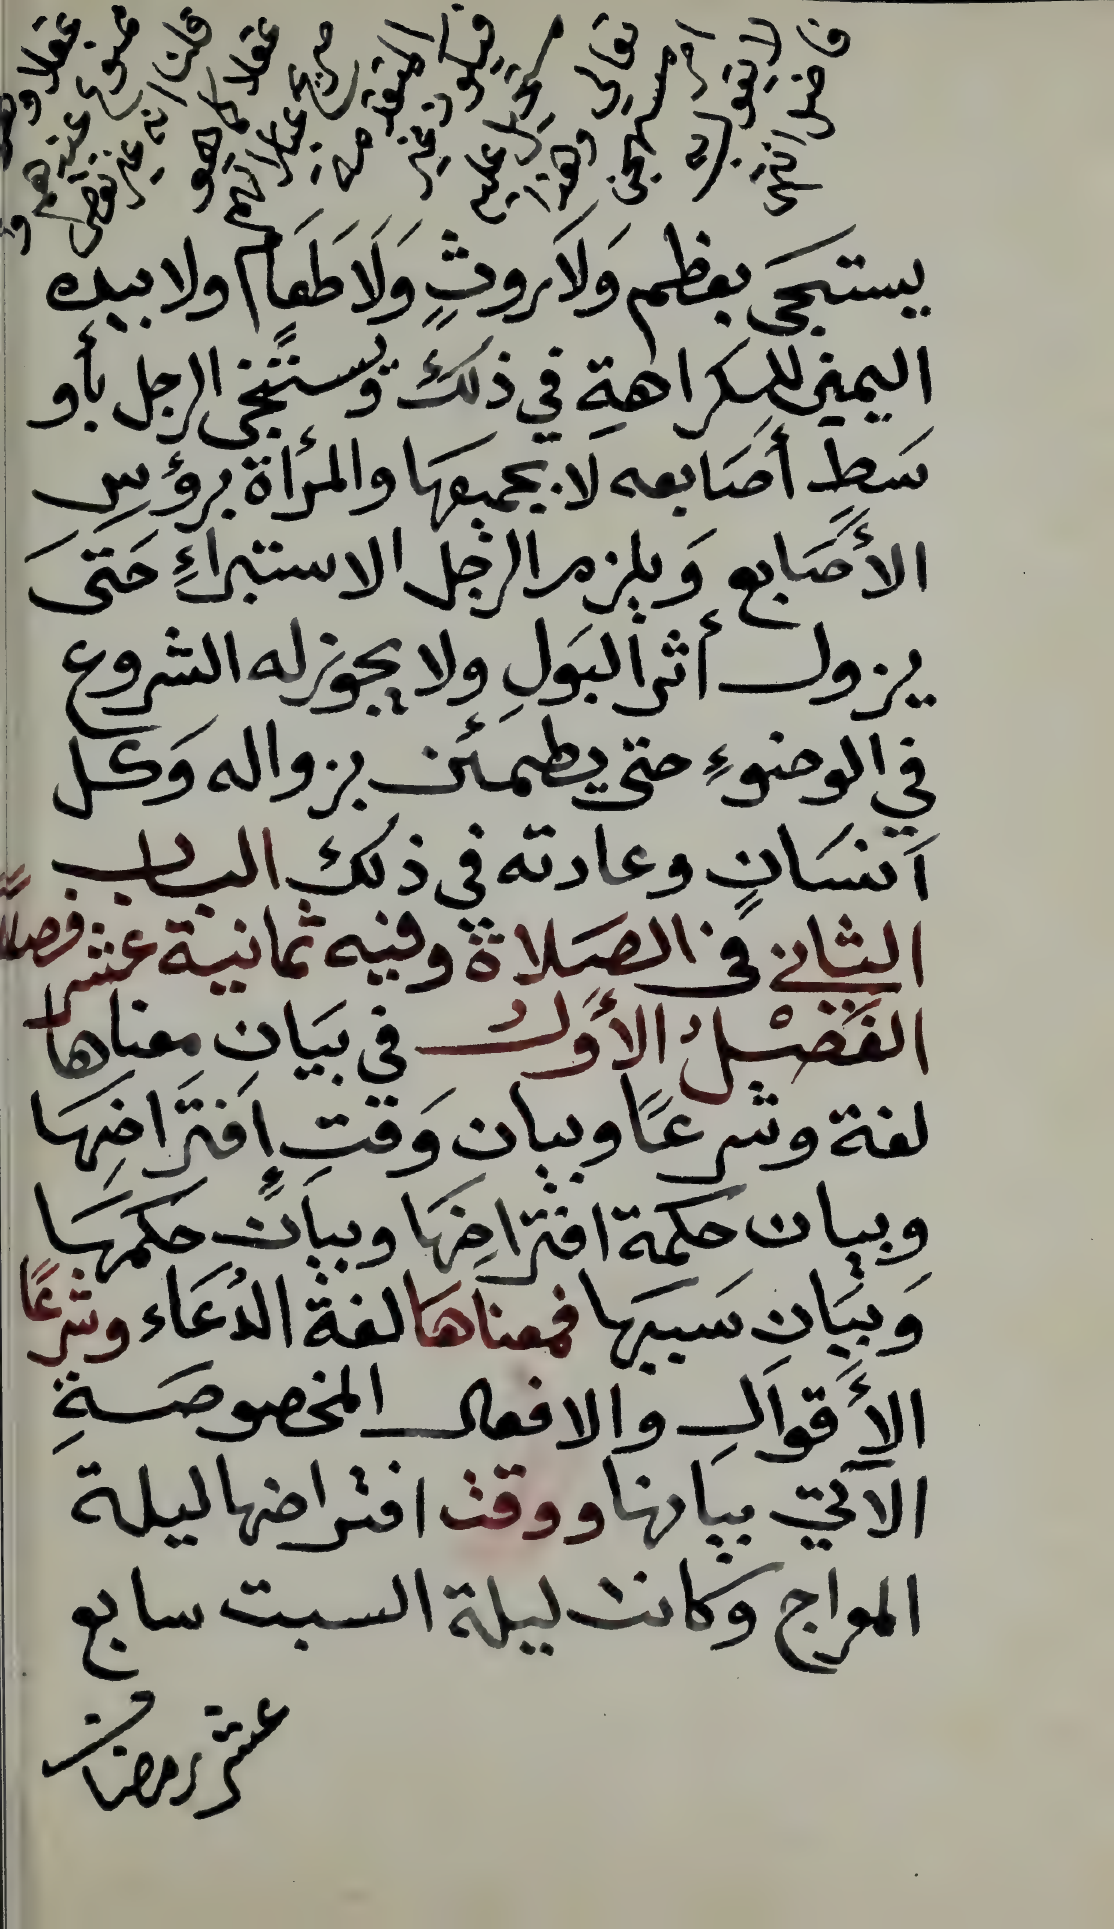 يستجى بعظم وَلَا روثٍ وَلَا طَعَام ولا بيده
اليمنى للكراهةِ في ذلك وَيستنجى الرجل بأو
سَطِ أصَابعه لا بجميعها والمرأة برؤسِ
الأصَابع وَيلزم الرجل الاستبراءِ حَتىَ
يزول أثر البَولِ ولا يجوز له الشروع
في الوضوءِ حتى يطمئن بزواله وَكل
اَنسَانٍ وعادته في ذلك الباب
الثاني في الصَلاة وفيه ثمانية عشر فصلًا
الفَصْلُ الأوَل في بيَان معناها
لغة وشرعًا وبيان وَقتِ إفترَاضِهَا
وبيان حكمة افترَاضِهَا وبيان حكمهَا
وَبيَان سَببهَا فمعناهَا لغة الدُعَاء وشرعًا
الأقوَالِ والافعال المخصوصَةِ
الآتي بيانها ووقت افتراضها ليلة
المعراج وَكانت ليلة السبت سابع
عشر رمضان